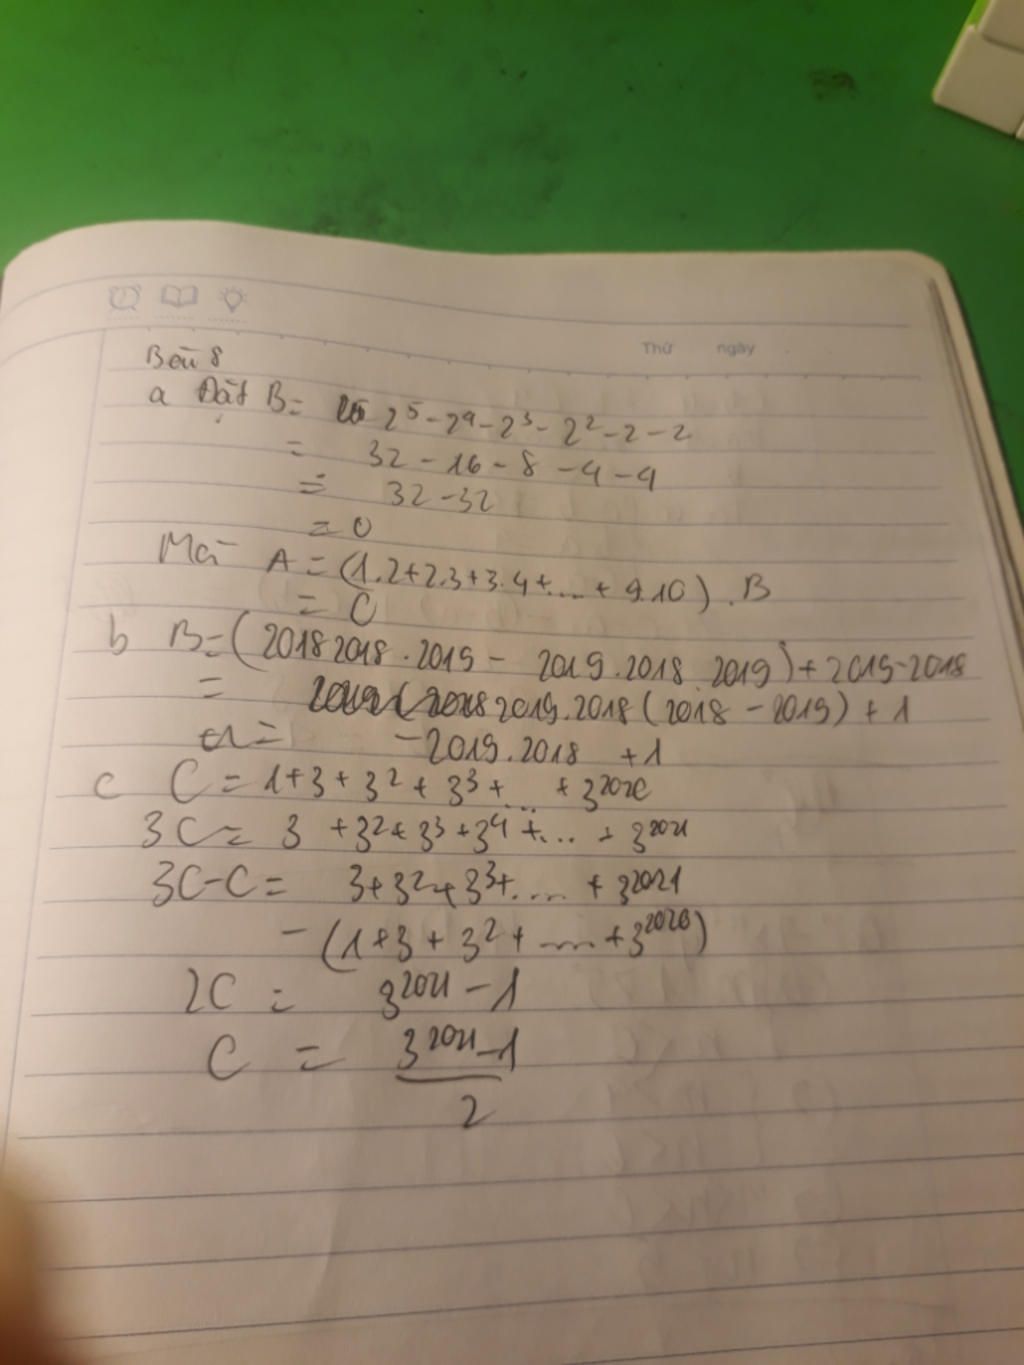 Thứ ngày
Bài 8
a Đặt B = 2⁵ - 2⁴ - 2³ - 2² - 2 - 2
= 32 - 16 - 8 - 4 - 4
= 32 - 32
= 0
Mà A = (1.2+2.3+3.4+...+ 9.10).B
= 0
b B=(20182018.2019 - 2019.2018 2019)+2019-2018
= 2019.2018(2018 - 2019) + 1
= -2019.2018 +1
c C = 1+3+3²+3³+... +3²⁰²⁰
3C = 3 +3²+3³+3⁴+... + 3²⁰²¹
3C-C = 3+3²+3³+.... + 3²⁰²¹
- (1+3+3²+....+3²⁰²⁰)
2C = 3²⁰²¹ - 1
C = 3²⁰²¹-1
2